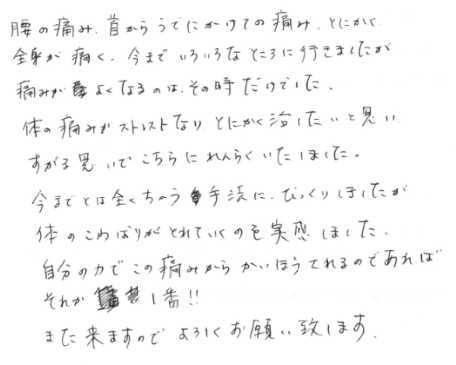 腰の痛み、首からうでにかけての痛み、とにかく
全身が痛く、今までいろいろなところに行きましたが
痛みがよくなるのは、その時だけでした。
体の痛みがストレストなりとにかく治したいと思い
すがる思いでこちらにれんらくいたしました。
今までとは全くちがう手法に、びっくりしましたが
体のこわばりがとれていくのを実感しました。
自分の力でこの痛みからかいほうされるのであれば
それが1番!!
また来ますのでよろしくお願い致します。